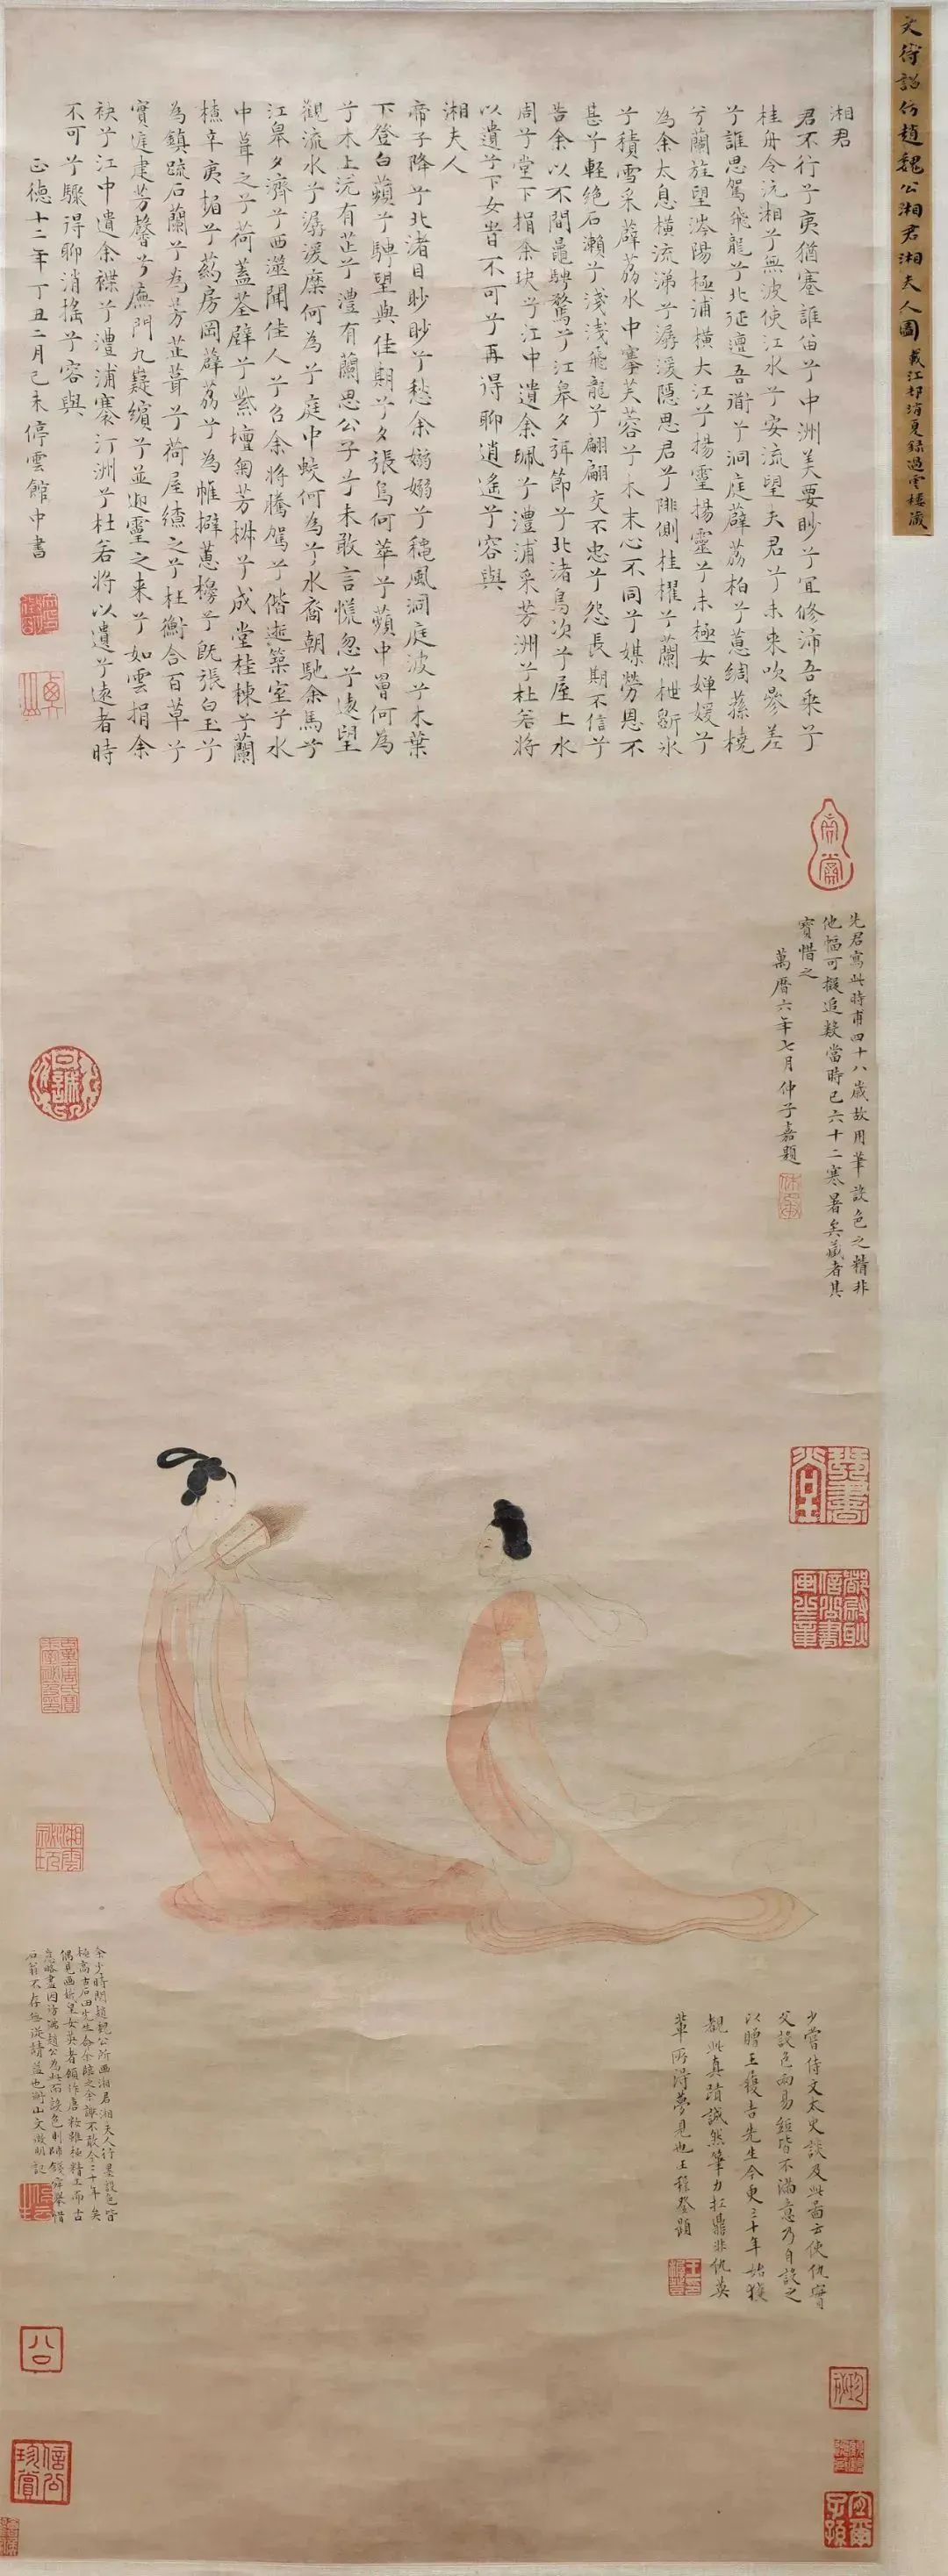 文待詔仿趙魏公湘君湘夫人圖 載江邨消夏錄過雲樓藏
湘君
君不行兮夷猶蹇誰留兮中洲美要眇兮宜修沛吾乘兮
桂舟令沅湘兮無波使江水兮安流望夫君兮未來吹參差
兮誰思駕飛龍兮北征邅吾道兮洞庭薜荔柏兮蕙綢蓀橈
兮蘭旌望涔陽極浦橫大江兮揚靈揚靈兮未極女嬋媛兮
為余太息橫流涕兮潺湲隱思君兮陫側桂櫂兮蘭枻斲冰
兮積雪采薜荔水中搴芙蓉兮木末心不同兮媒勞恩不
甚兮輕絕石瀨兮淺淺飛龍兮翩翩交不忠兮怨長期不信兮
告余以不閒鼂騁騖兮江皋夕弭節兮北渚鳥次兮屋上水
周兮堂下捐余玦兮江中遺余珮兮澧浦采芳洲兮杜若將
以遺兮下女旹不可兮再得聊逍遙兮容與
湘夫人
帝子降兮北渚目眇眇兮愁余嫋嫋兮穐風洞庭波兮木葉
下登白蘋兮騁望與佳期兮夕張鳥何萃兮蘋中罾何為
兮木上沅有芷兮澧有蘭思公子兮未敢言慌忽兮遠望
觀流水兮潺湲麋何為兮庭中蛟何為兮水裔朝馳余馬兮
江皋夕濟兮西澨聞佳人兮召余將騰駕兮偕逝築室兮水
中葺之兮荷蓋荃壁兮紫壇匊芳椒兮成堂桂棟兮蘭
橑辛夷楣兮葯房罔薜荔兮為帷擗蕙櫋兮既張白玉兮
為鎮疏石蘭兮為芳芷葺兮荷屋繚之兮杜衡合百草兮
實庭建芳馨兮廡門九嶷繽兮並迎靈之來兮如雲捐余
袂兮江中遺余褋兮澧浦搴汀洲兮杜若將以遺兮遠者時
不可兮驟得聊消搖兮容與
正德十二年丁丑二月己未停雲館中書
先君寫此時甫四十八歲故用筆設色之精非
他幅可擬追數當時已六十二寒暑矣藏者其
寶惜之
萬曆六年七月仲子嘉題
少嘗侍文太史談及此圖云使仇實
父設色兩易紙皆不滿意乃自設之
以贈王履吉先生今更三十年始獲
觀此真蹟誠然筆力扛鼎非仇英
輩所得夢見也王穉登題
余少時閱趙魏公所画湘君湘夫人行墨設色皆
極高古石田先生命余臨之余謝不敢今二十年矣
偶見画娥皇女英者顧作唐粧雖極精工而古
意略盡因仿佛趙公為此而設色則師錢舜舉惜
石翁不存無從請益也衡山文徵明記
琴書堂
信公珍賞